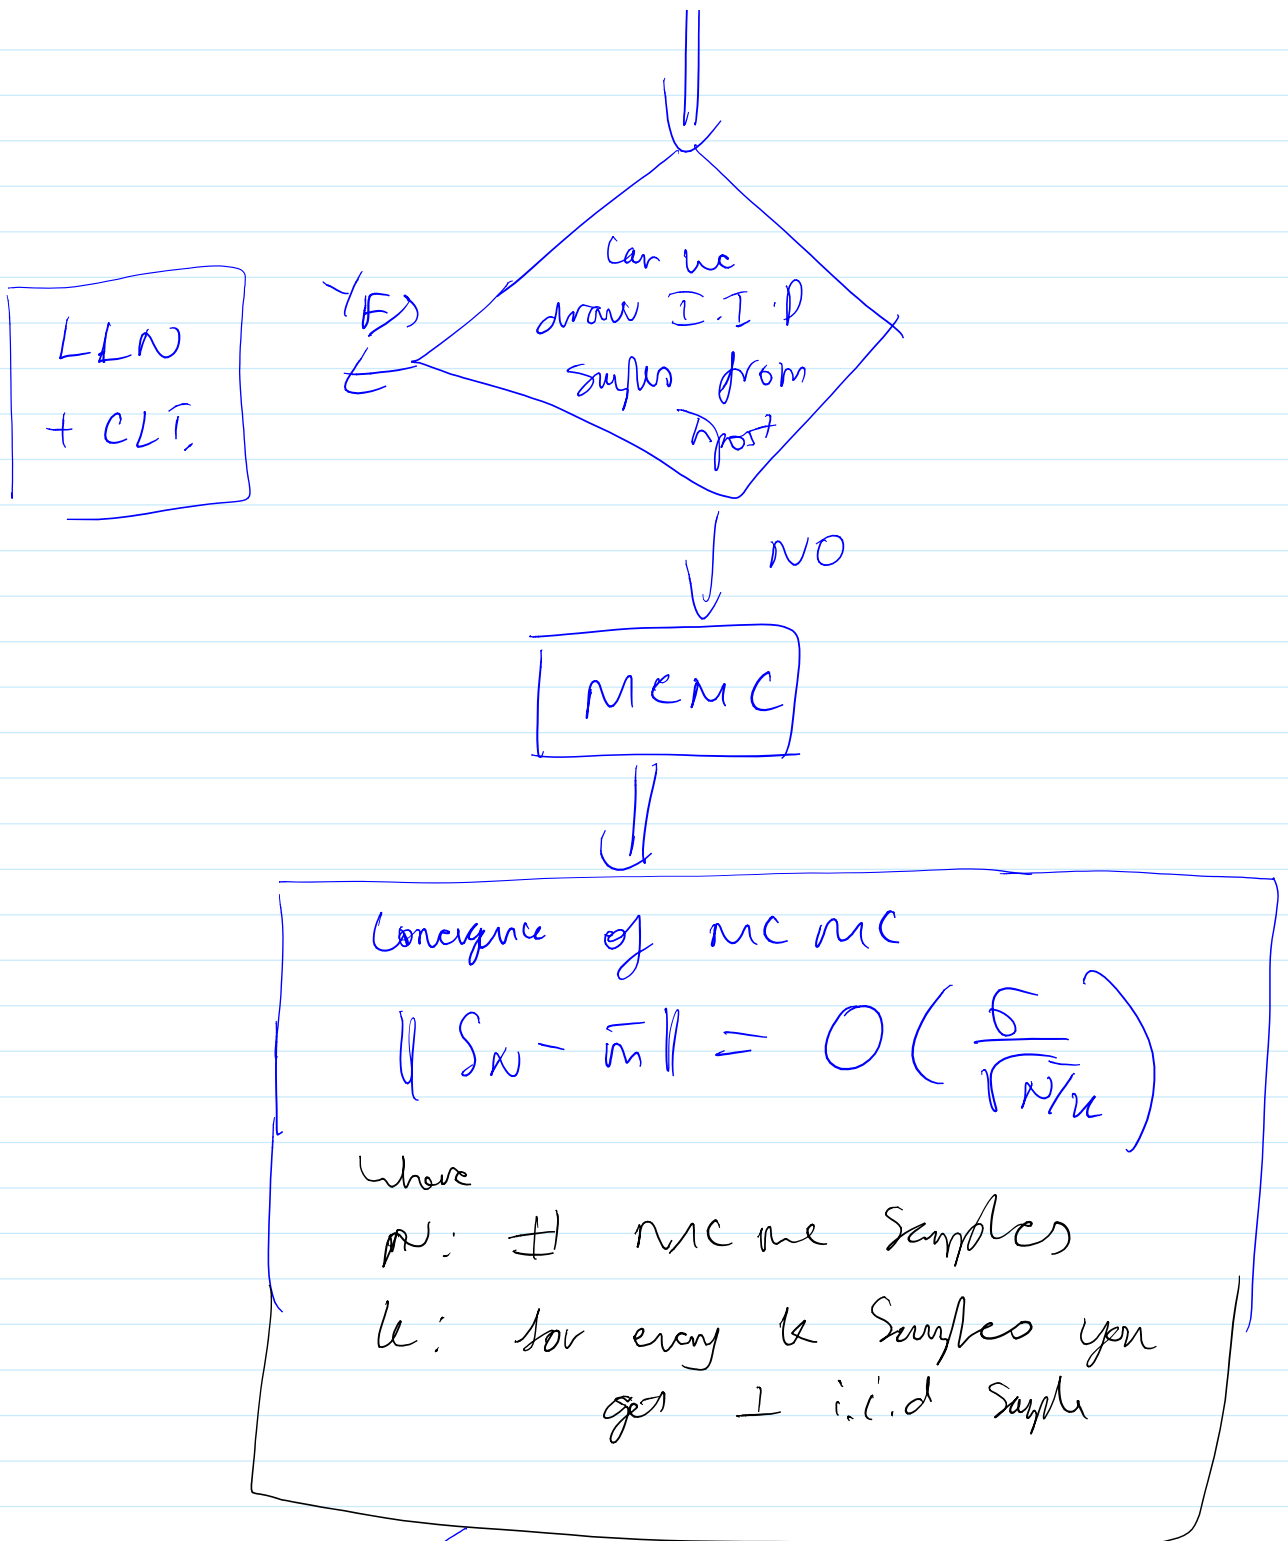 Can we
draw I.I.D
samples from
πpost
YES
LLN
+ CLT.
NO
MCMC
Convergence of MCMC
‖ S_N - m̄ ‖ = O( σ / √(N/k) )
where
N: # MCMC samples
k: for every k samples you
get 1 i.i.d sample